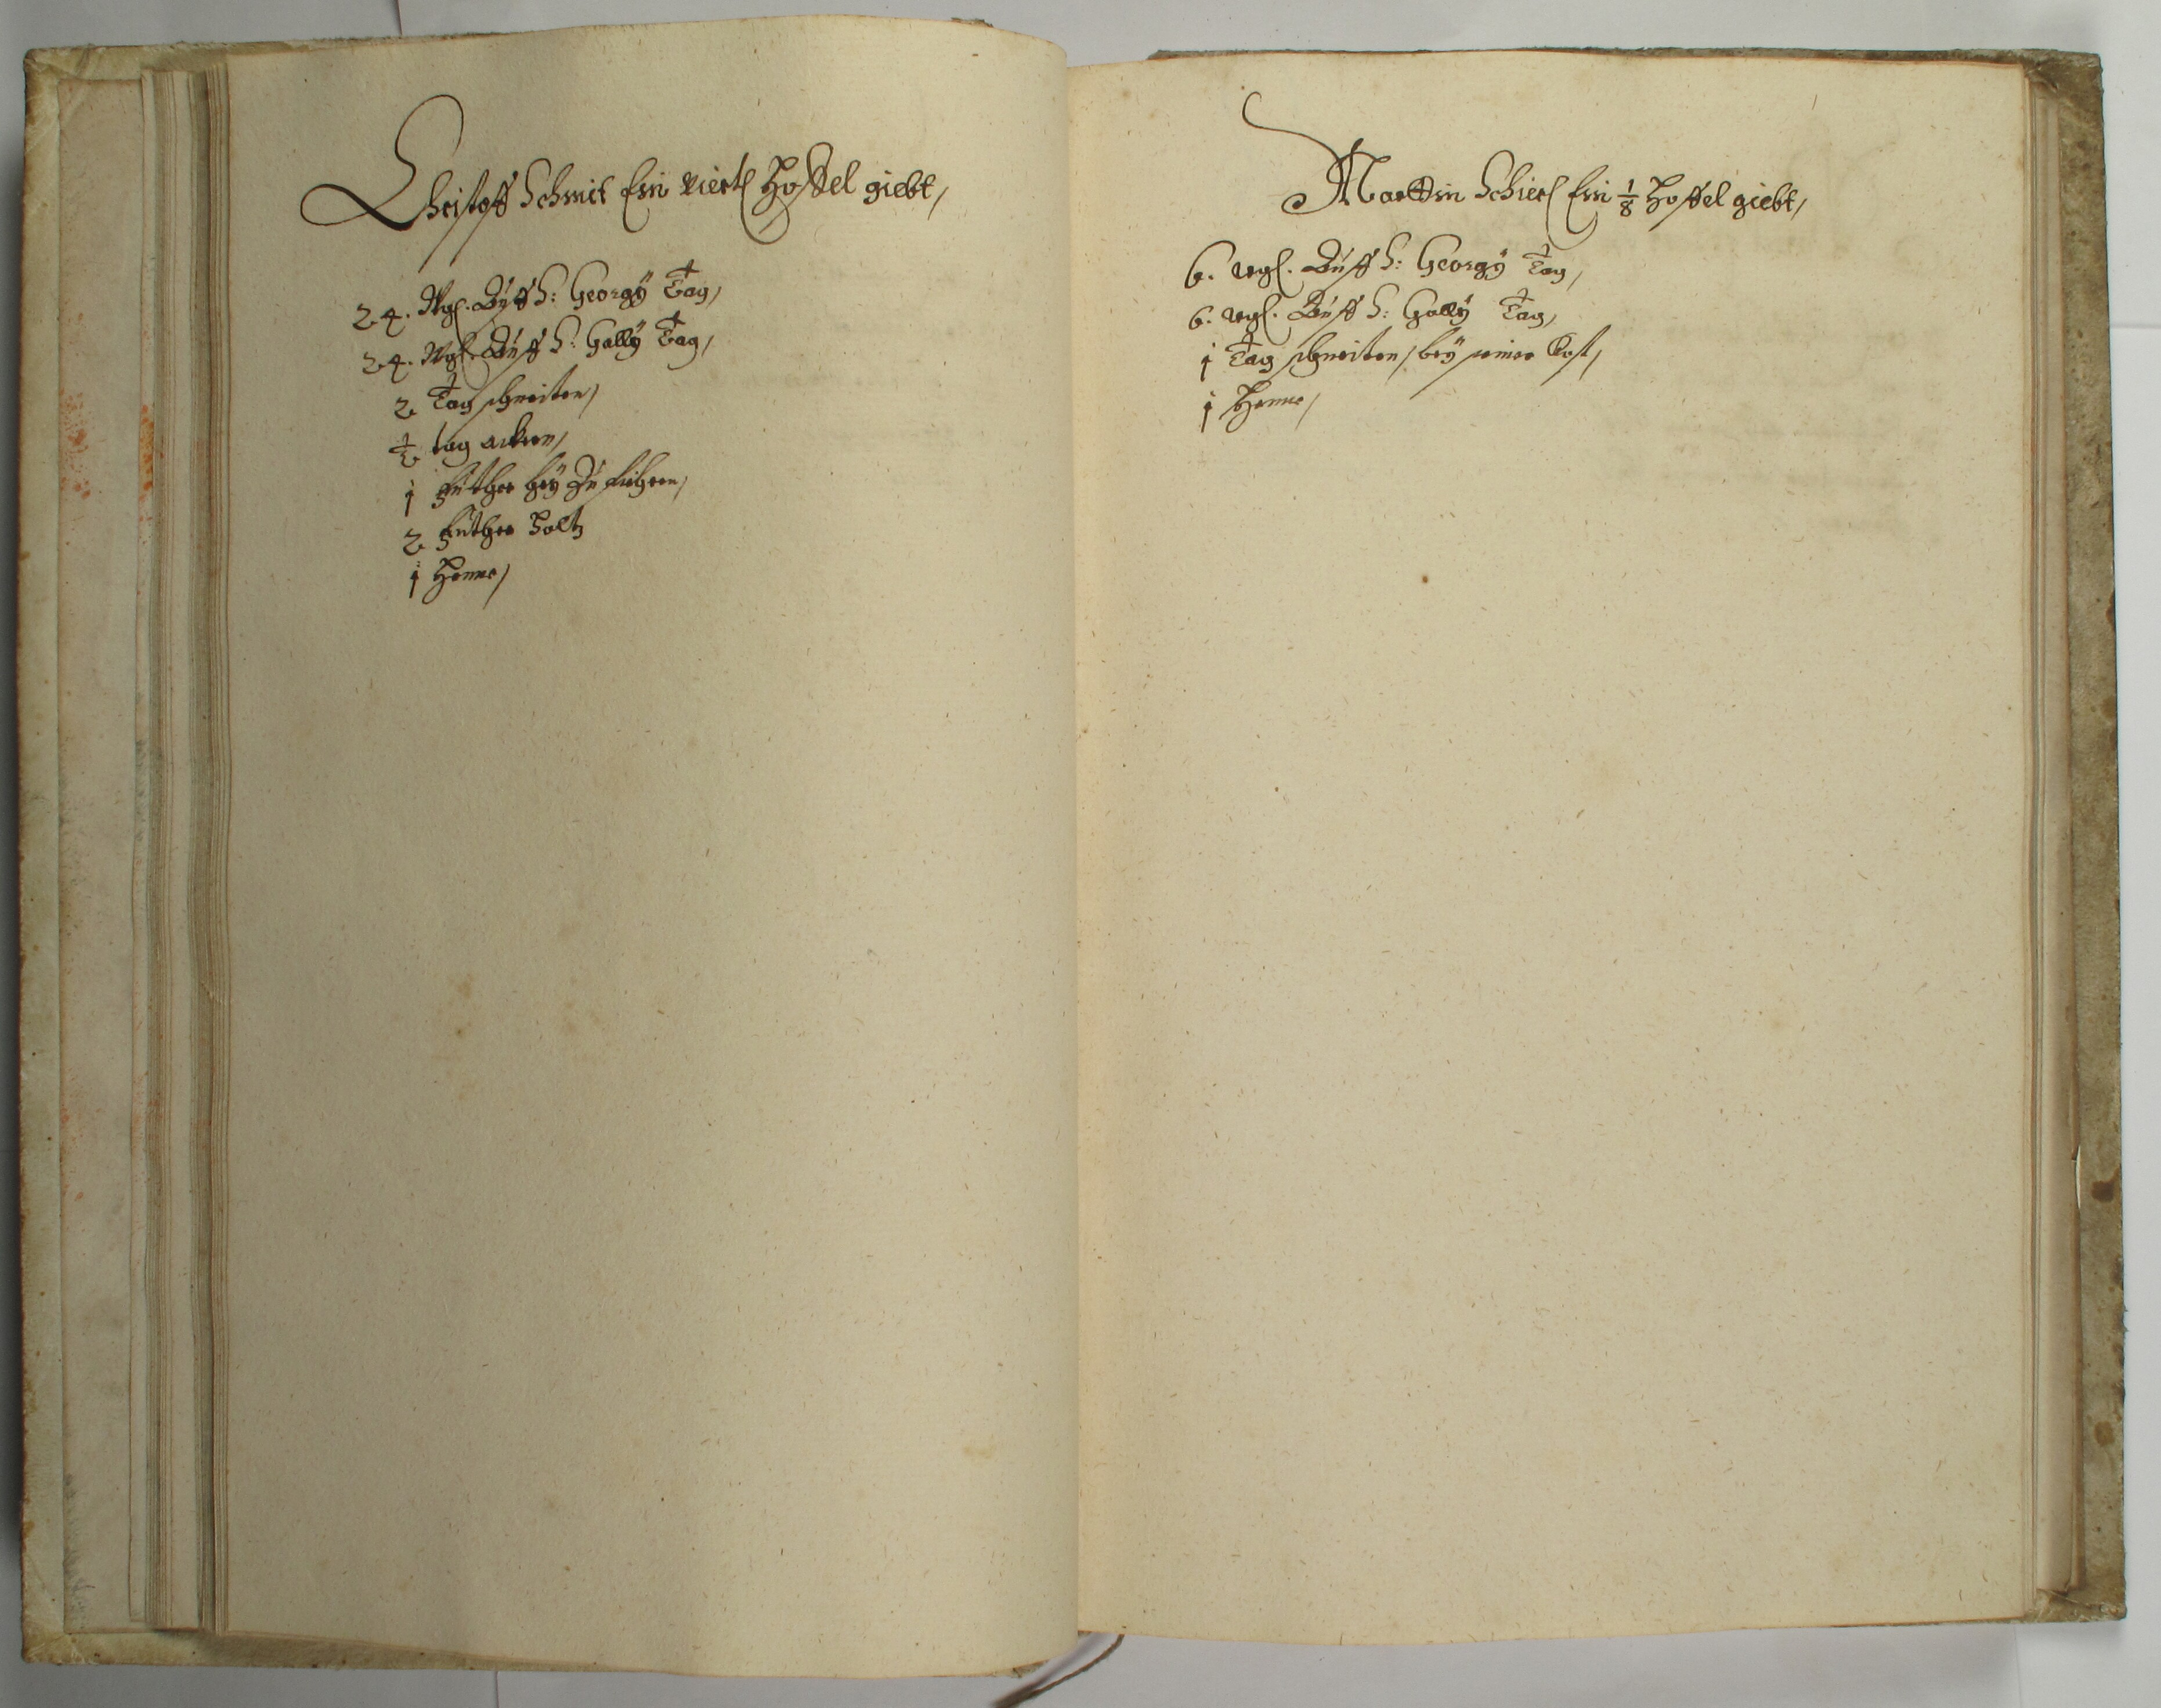 Christoff Schmit Ein viertl Hoffel giebt,
24. Wgl. Auff S: Georgÿ Tag,
24. Wgl. Auff S: Gallÿ Tag,
2 Tag schneiten,
½ tag ackern,
1 Futher heÿ Zu fiehren,
2 Futher Holtz
1 Henne,
Marttin Schierl Ein 1/8 Hoffel giebt,
6. wgl. Auff S: Georgÿ Tag,
6. wgl. Auff S: Gallÿ Tag,
1 Tag schneiten, beÿ seiner Cost,
1 Henne,